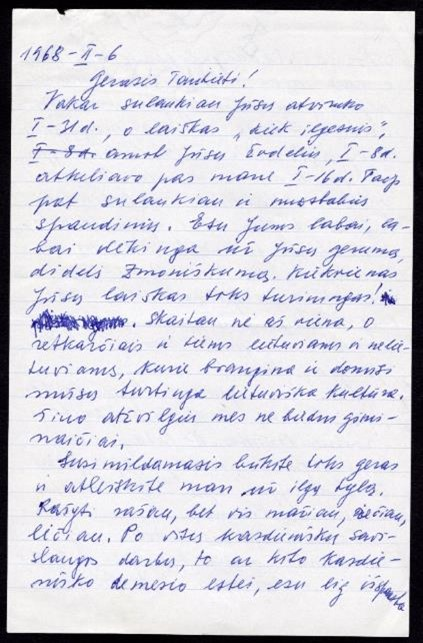 1968-II-6
Gerasis Tautieti!
Vakar sulaukiau Jūsų atviruko
I-31d., o laiškas „kiek ilgesnis",
I-8d. anot Jūsų žodelių, I-8d.
atkeliavo pas mane I-16d. Taip
pat sulaukiau ir nuostabius
spaudinius. Esu Jums labai, la-
bai dėkinga už Jūsų gerumą,
didelį žmoniškumą. Kiekvienas
Jūsų laiškas toks turiningas!
Skaitau ne aš viena, o
retkarčiais ir tiems lietuviams ir nelie-
tuviams, kurie brangina ir domisi
mūsų turtinga lietuviška kultūra.
Tuo atžvilgiu mes ne
naičiai.
Susimildamasis būkite toks geras
ir atleiskite man už ilgą tylą.
Rašyti rašau, bet vis mažiau, rečiau,
Po visų kasdieniškų
slaugos darbų, to ar kito kasdie-
niško dėmesio esu